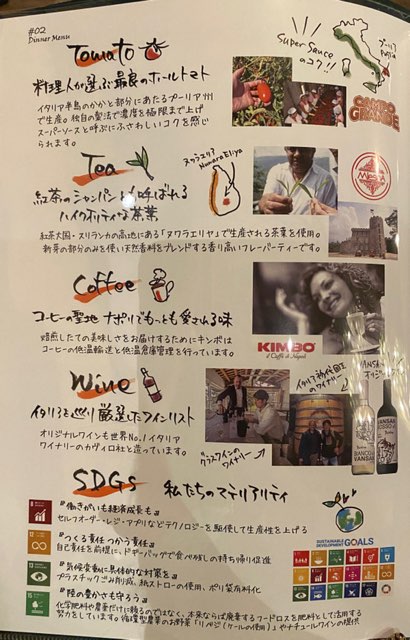 #02
Dinner Menu
Tomato
料理人が選ぶ最良のホールトマト
イタリア半島のかかと部分にあたるプーリア州
で生産。独自の製法で濃度を極限まで上げ
スーパーソースと呼ぶにふさわしいコクを感じ
られます。
Super Sauce
のコク!!
プーリア
Puglia
CAMPO
GRANDE
Tea
紅茶のシャンパンとも呼ばれる
ハイクオリティな茶葉
紅茶大国・スリランカの高地にある「ヌワラエリヤ」で生産される茶葉を使用。
新芽の部分のみを使い天然香料をブレンドする香り高いフレーバーティーです。
ヌワラエリア
Nuwara Eliya
Coffee
コーヒーの聖地 ナポリでもっとも愛される味
焙煎したての美味しさをお届けするためにキンボは
コーヒーの低温輸送と低温倉庫管理を行っています。
KIMBO
il Caffè di Napoli
Wine
イタリアを巡り厳選したワインリスト
オリジナルワインも世界No.1イタリア
ワイナリーのカヴィロ社と造っています。
グラスワインの
ワイナリー
イタリア初代国王
のワイナリー
SDGs 私たちのマテリアリティ
『働きがいも経済成長も』
セルフオーダー・レジ・アプリなどテクノロジーを駆使して生産性を上げる
『つくる責任つかう責任』
自己責任を前提に、ドギーバッグで食べ残しの持ち帰り促進
『気候変動に具体的な対策を』
プラスチックごみ削減、紙ストローの使用、ポリ袋有料化
『陸の豊かさも守ろう』
化学肥料や農薬だけに頼るのではなく、本来ならば廃棄するフードロスを肥料として活用する
努力をしています。循環型農業のお野菜「リベジ(ケールの使用)」やナチュールワインの提供
SUSTAINABLE
DEVELOPMENT
GOALS